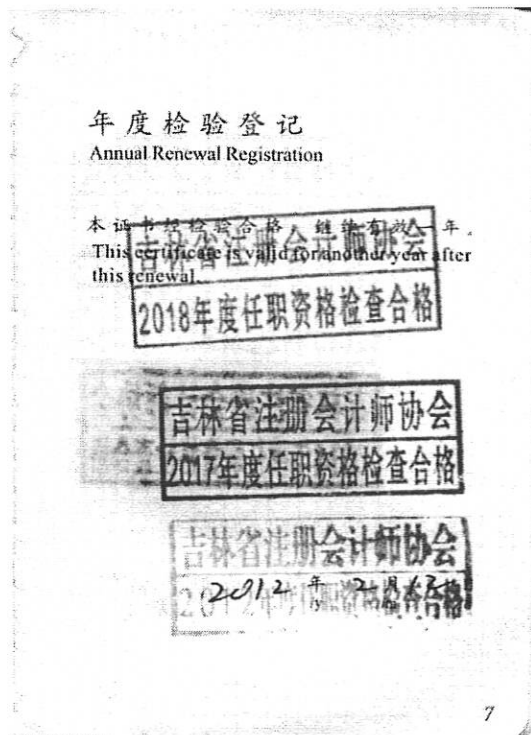 年度检验登记
Annual Renewal Registration
本证书经检验合格，继续有效一年。
This certificate is valid for another year after
this renewal.
吉林省注册会计师协会
2018年度任职资格检查合格
吉林省注册会计师协会
2017年度任职资格检查合格
吉林省注册会计师协会
2012年度任职资格检查合格
2012 年 2 月
7